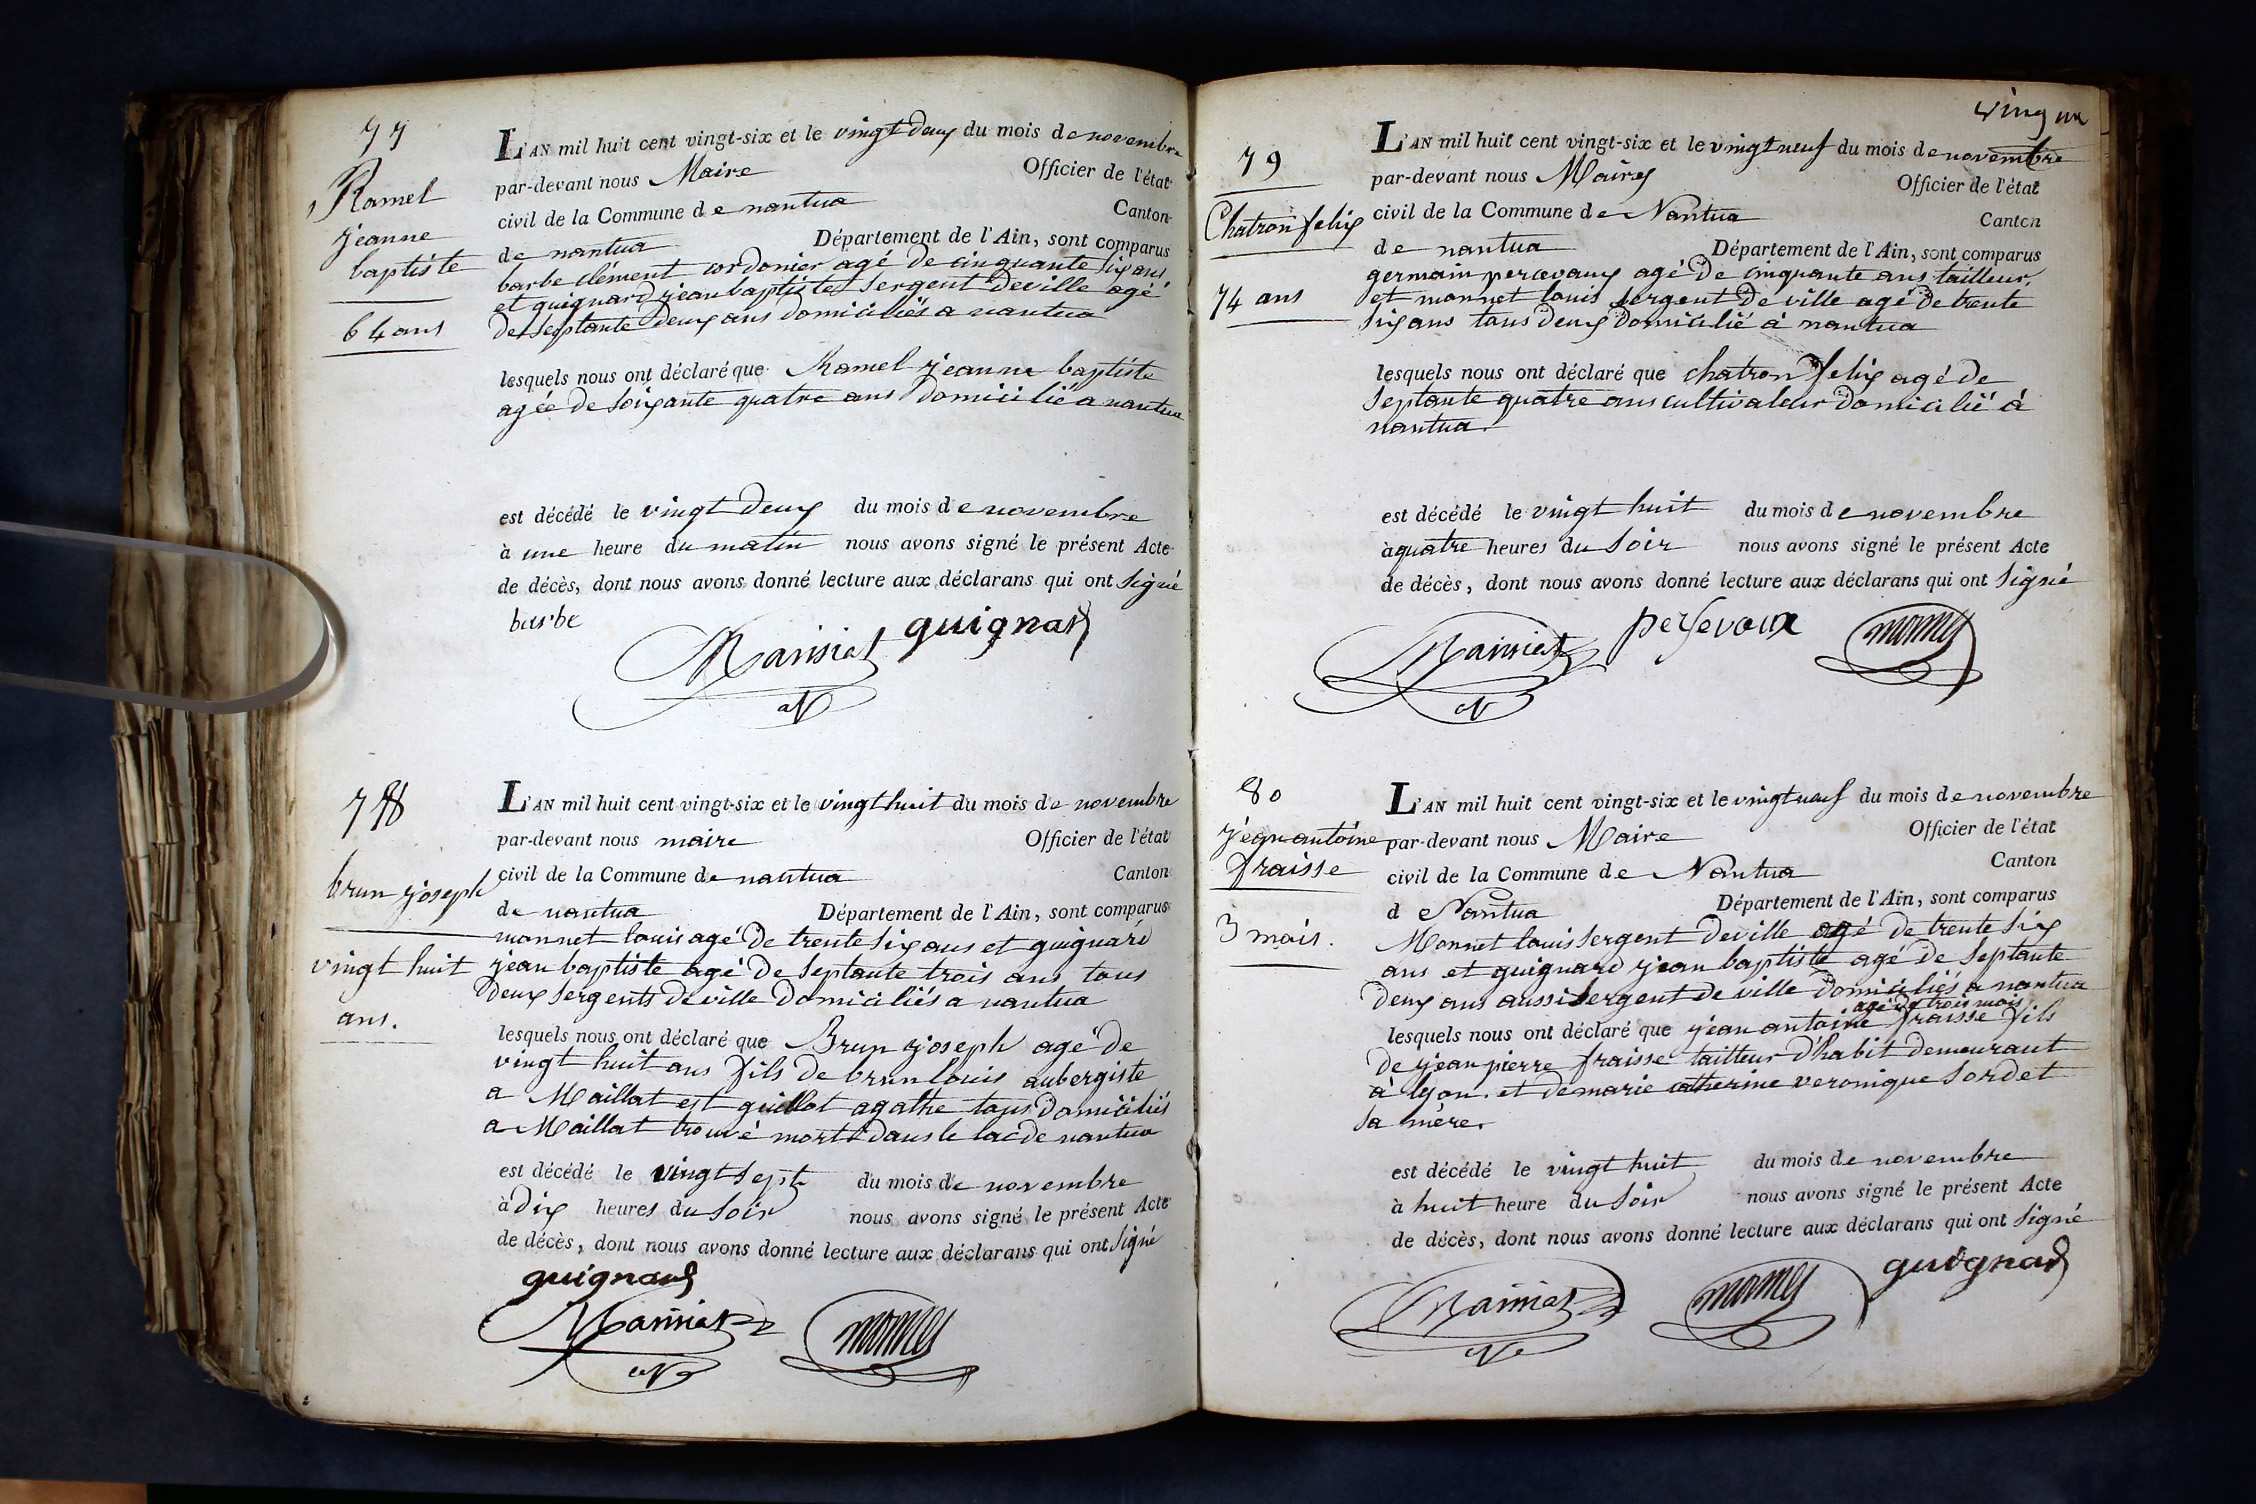 77
Ramel
jeanne
baptiste
64 ans
L'AN mil huit cent vingt-six et le vingt deux du mois de novembre
par-devant nous Maire Officier de l'état
civil de la Commune de nantua Canton
de nantua Département de l'Ain, sont comparus
barbe clément cordonier agé de cinquante six ans
et guignard jean baptiste Sergent deville agé
de septante deux ans domiciliés a nantua
lesquels nous ont déclaré que Ramel jeanne baptiste
agée de soixante quatre ans domicilié a nantua
est décédé le vingt deux du mois de novembre
à une heure du matin nous avons signé le présent Acte
de décès, dont nous avons donné lecture aux déclarans qui ont signé
barbe
guignard
78
brun joseph
vingt huit
ans.
L'AN mil huit cent vingt-six et le vingt huit du mois de novembre
par-devant nous maire Officier de l'état
civil de la Commune de nantua Canton
de nantua Département de l'Ain, sont comparus
monnet louis agé de trente six ans et guignard
jean baptiste agé de septante trois ans tous
deux sergents de ville domiciliés a nantua
lesquels nous ont déclaré que Brun joseph agé de
vingt huit ans fils de brun louis aubergiste
a Maillat est guillot agathe tous domiciliés
a Maillat trouvé mort dans le lac de nantua
est décédé le vingt sept du mois de novembre
à dix heures du soir nous avons signé le présent Acte
de décès, dont nous avons donné lecture aux déclarans qui ont signé
guignard
monnet
79
Chatron felix
74 ans
L'AN mil huit cent vingt-six et le vingt neuf du mois de novembre
par-devant nous Maire Officier de l'état
civil de la Commune de Nantua Canton
de nantua Département de l'Ain, sont comparus
germain percevaux agé de cinquante ans tailleur,
et monnet louis sergent de ville agé de trente
six ans tous deux domicilié à nantua
lesquels nous ont déclaré que chatron felix agé de
septante quatre ans cultivateur domicilié à
nantua.
est décédé le vingt huit du mois de novembre
à quatre heures du soir nous avons signé le présent Acte
de décès, dont nous avons donné lecture aux déclarans qui ont signé
persevaux
monnet
80
jean antoine
fraisse
3 mois.
L'AN mil huit cent vingt-six et le vingt neuf du mois de novembre
par-devant nous Maire Officier de l'état
civil de la Commune de Nantua Canton
de Nantua Département de l'Ain, sont comparus
Monnet louis sergent deville agé de trente six
ans et guignard jean baptiste agé de septante
deux ans aussi sergent de ville domiciliés a nantua
agé de trois mois
lesquels nous ont déclaré que jean antoine fraisse fils
de jean pierre fraisse tailleur d'habit demeurant
à lyon. et de marie catherine veronique Sordet
sa mère.
est décédé le vingt huit du mois de novembre
à huit heure du soir nous avons signé le présent Acte
de décès, dont nous avons donné lecture aux déclarans qui ont signé
monnet
guignard